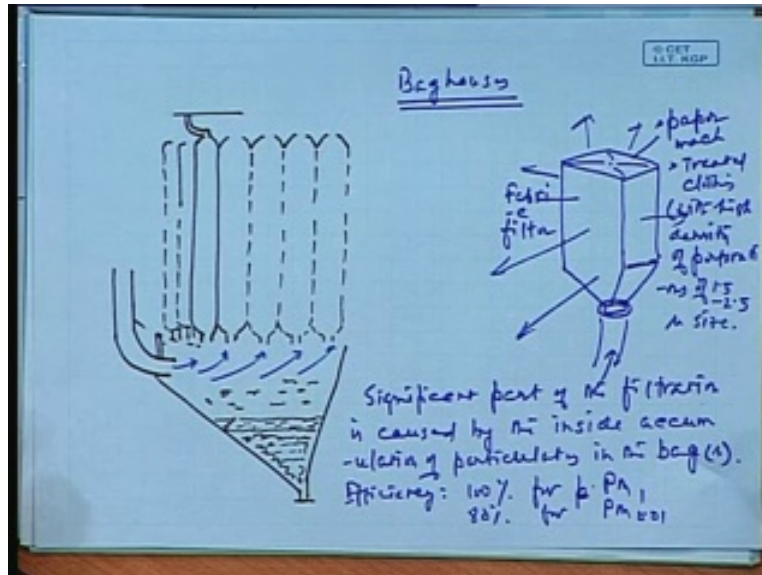 © CET
I.I.T. KGP
Baghouses
paper
mach
Treated
cloths
Fabri
c
filter
(with high
density
of perforati
-ns of 1.5
-2.5
μ size.
Significant part of the filtration
is caused by the inside accum
-ulation of particulates in the bag(s).
Efficiency: 100% for PM1
80% for